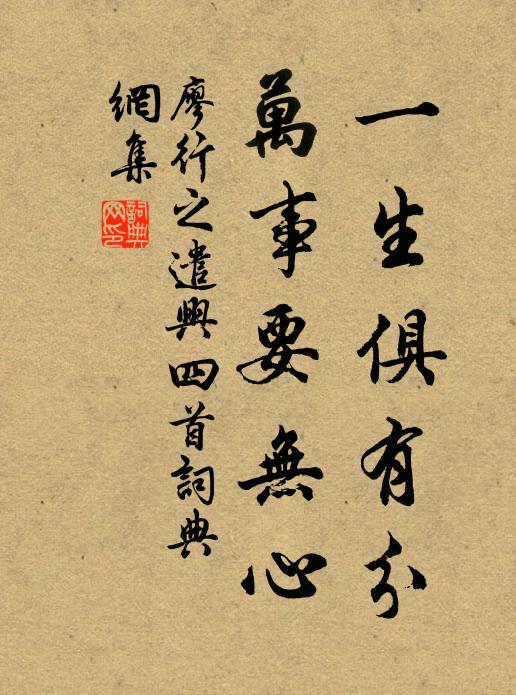 一生俱有分
萬事要無心
廖行之遣興四首詞典
網集
詞典
網印